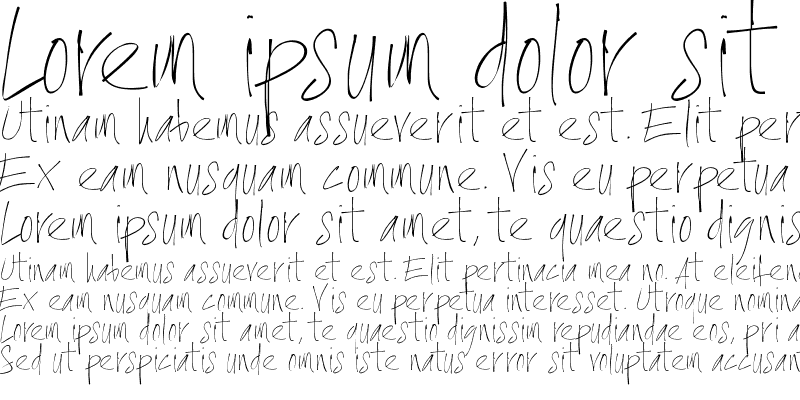 Lorem ipsum dolor sit
Utinam habemus assueverit et est. Elit per
Ex eam nusquam commune. Vis eu perpetua
Lorem ipsum dolor sit amet, te quaestio dignis
Utinam habemus assueverit et est. Elit pertinacia mea no. At eleifen
Ex eam nusquam commune. Vis eu perpetua interesset. Utroque nomina
Lorem ipsum dolor sit amet, te quaestio dignissim repudiandae eos, pri a
Sed ut perspiciatis unde omnis iste natus error sit voluptatem accusan